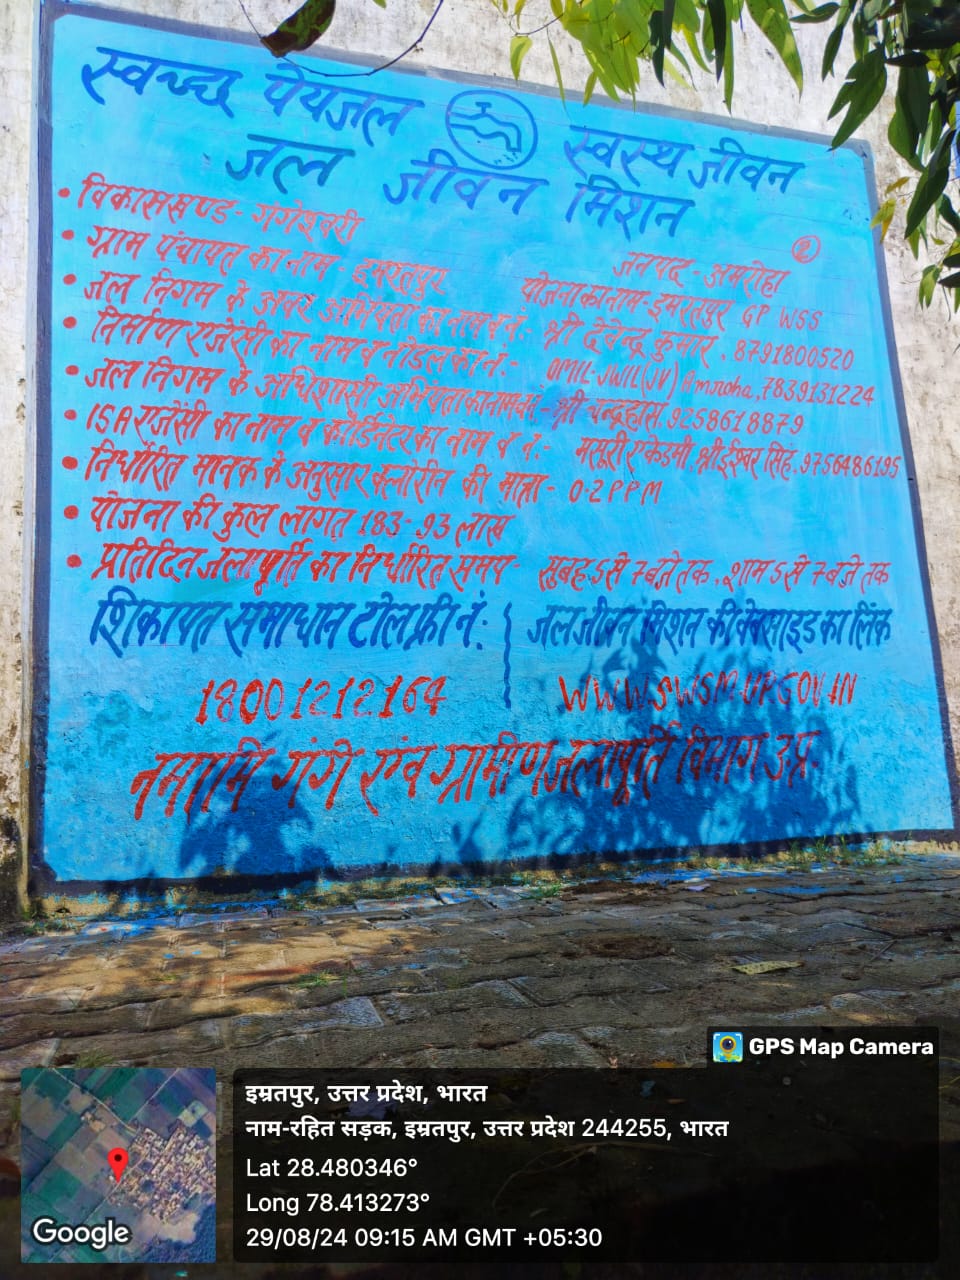 स्वच्छ पेयजल स्वस्थ जीवन
जल जीवन मिशन
• विकासखण्ड - गंगेश्वरी जनपद - अमरोहा
• ग्राम पंचायत का नाम - इमरतपुर योजना का नाम - इमरतपुर GP WSS
• जल निगम के अवर अभियंता का नाम व नं:- श्री देवेन्द्र कुमार, 8791800520
• निर्माण एजेंसी का नाम व नोडल का नं:- OMIL-JWIL(JV) Amroha, 7839131224
• जल निगम के अधिशासी अभियंता का नाम व नं:- श्री चन्द्रहास, 9258618879
• ISA एजेंसी का नाम व कोर्डिनेटर का नाम व नं:- मसूरी एकेडमी, श्री ईश्वर सिंह, 9756486195
• निर्धारित मानक के अनुसार क्लोरीन की मात्रा - 0.2 PPM
• योजना की कुल लागत 183-93 लाख
• प्रतिदिन जलापूर्ति का निर्धारित समय - सुबह 5 से 7 बजे तक, शाम 5 से 7 बजे तक
शिकायत समाधान टोल फ्री नं: जल जीवन मिशन की वेबसाइड का लिंक
18001212164 WWW.SWSM.UP.GOV.IN
नमामि गंगे एंव ग्रामीण जलापूर्ति विभाग उ.प्र.
GPS Map Camera
इम्रतपुर, उत्तर प्रदेश, भारत
नाम-रहित सड़क, इम्रतपुर, उत्तर प्रदेश 244255, भारत
Lat 28.480346°
Long 78.413273°
29/08/24 09:15 AM GMT +05:30
Google